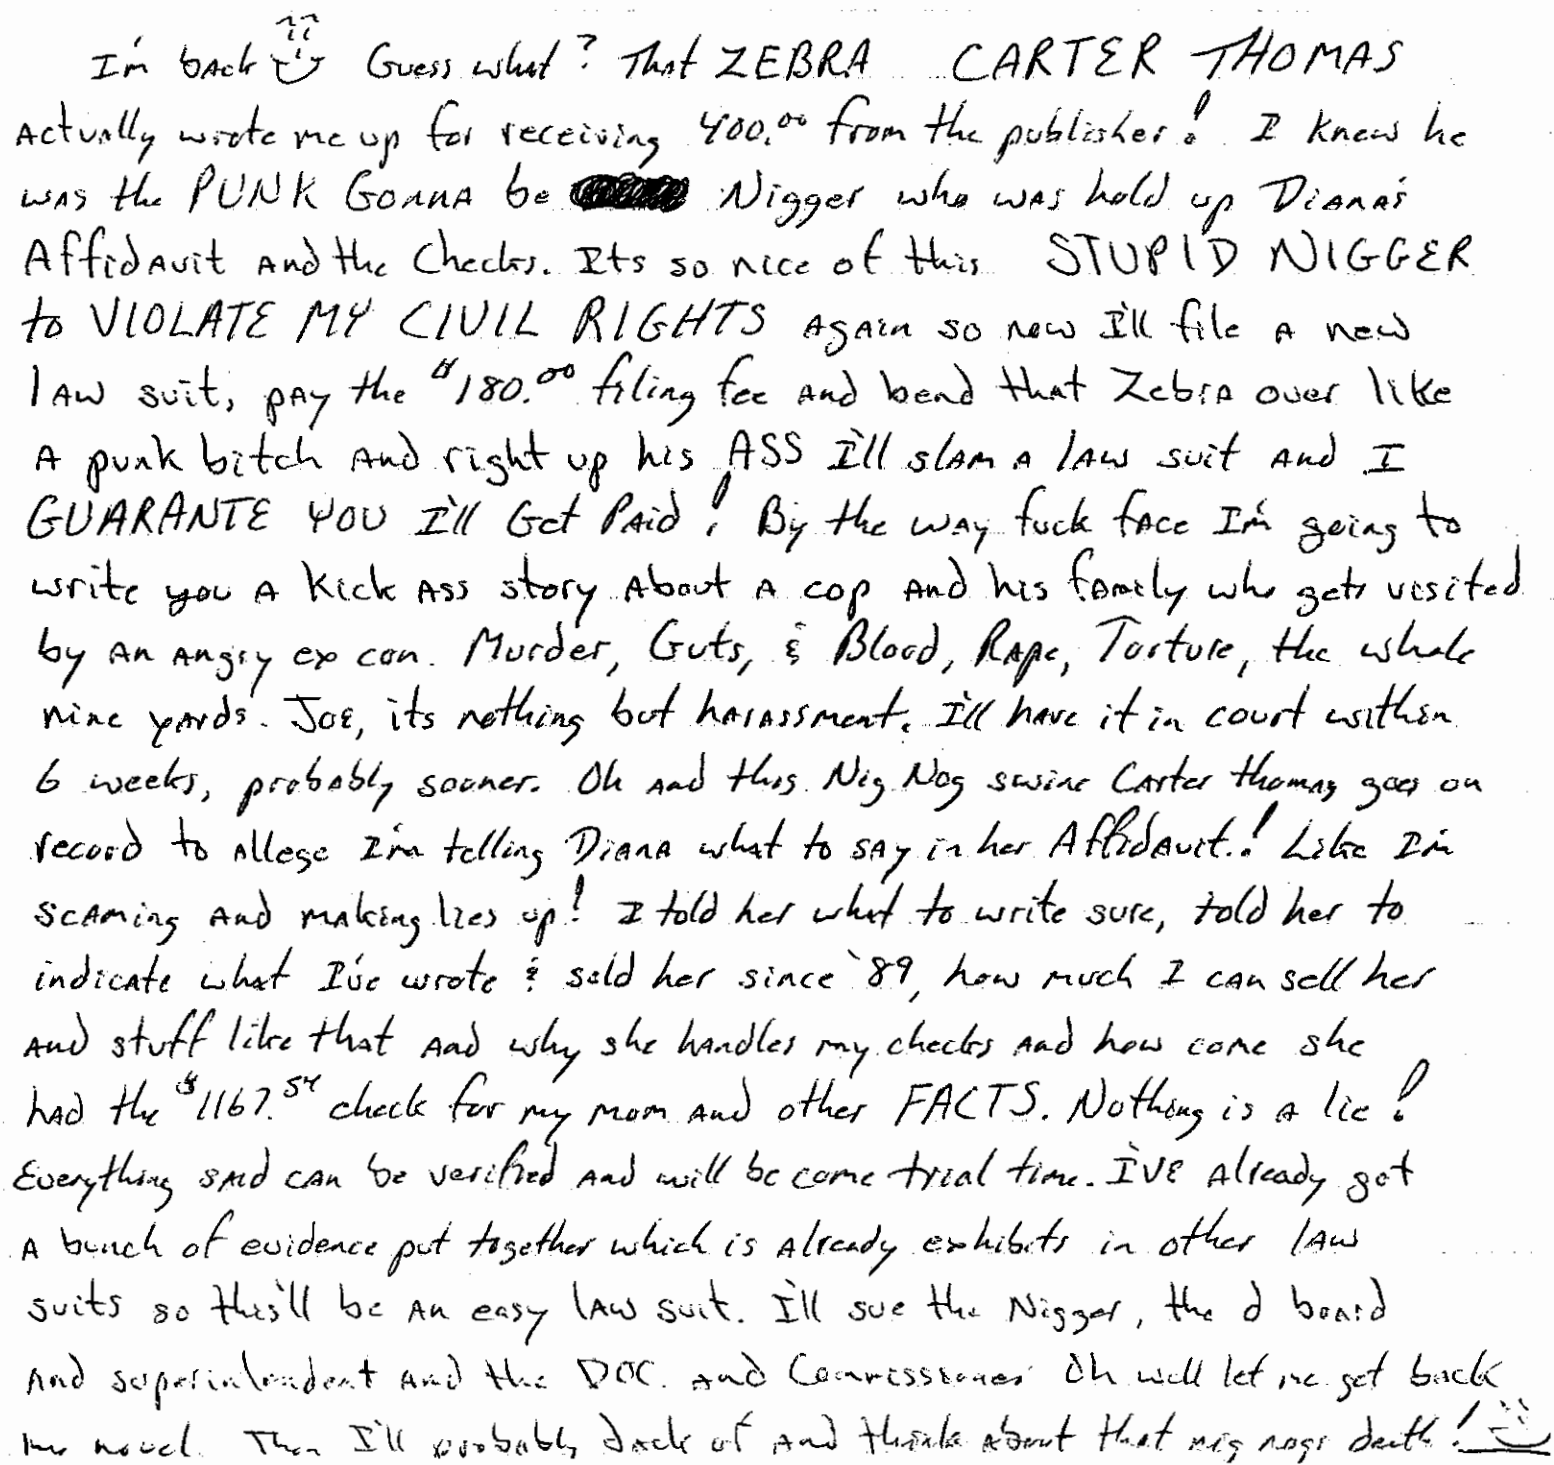 I'm back Guess what? That ZEBRA CARTER THOMAS
Actually wrote me up for receiving 400.00 from the publisher! I knew he
was the PUNK GONNA be Nigger who was hold up Diana's
Affidavit and the Checks. Its so nice of this STUPID NIGGER
to VIOLATE MY CIVIL RIGHTS again so now I'll file a new
law suit, pay the $180.00 filing fee and bend that Zebra over like
a punk bitch and right up his ASS I'll slam a law suit and I
GUARANTE YOU I'll Get Paid! By the way fuck face I'm going to
write you a kick ass story about a cop and his family who gets visited
by an angry ex con. Murder, Guts, & Blood, Rape, Torture, the whole
nine yards. Joe, its nothing but harassment. I'll have it in court within
6 weeks, probably sooner. Oh and this Nig Nog swine Carter thomas goes on
record to allege I'm telling Diana what to say in her Affidavit.! Like I'm
scaming and making lies up! I told her what to write sure, told her to
indicate what I've wrote & sold her since '89, how much I can sell her
and stuff like that and why she handles my checks and how come she
had the $1167.54 check for my mom and other FACTS. Nothing is a lie!
Everything said can be verified and will be come trial time. I'VE already got
a bunch of evidence put together which is already exhibits in other law
suits so this'll be an easy law suit. I'll sue the Nigger, the d board
and superintendent and the DOC. and Commissioner Oh well let me get back
novel. Then I'll probably Jack of and think about that nig nogs death!